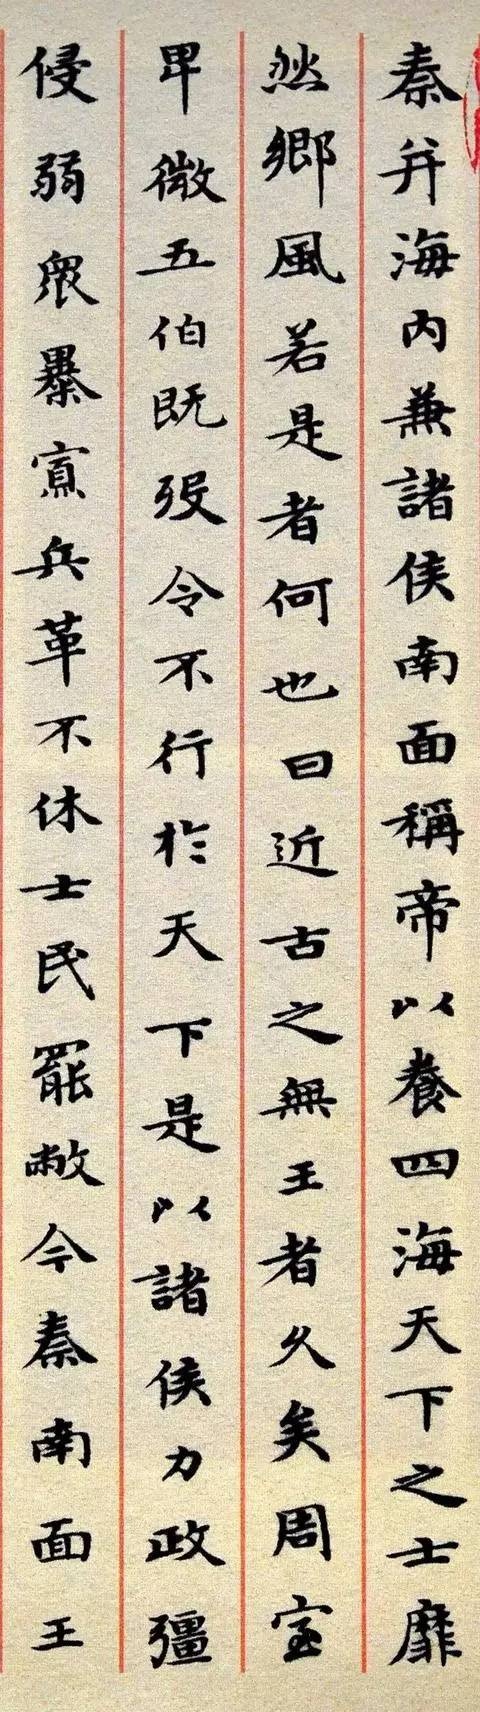 秦并海内兼諸侯南面稱帝以養四海天下之士靡
然鄉風若是者何也曰近古之無王者久矣周室
卑微五伯既歿令不行於天下是以諸侯力政彊
侵弱衆暴寡兵革不休士民罷敝今秦南面王